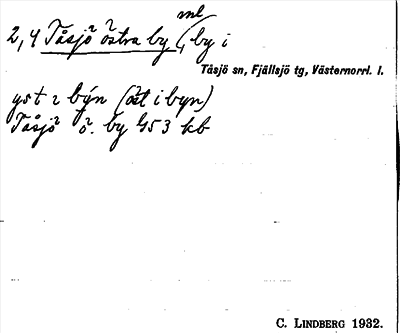 2,4 Tåsjö östra by (ml by i
Tåsjö sn, Fjällsjö tg, Västernorrl. l.
yst i býn (öst i byn)
Tåsjö ö. by 453 kb
C. LINDBERG 1932.